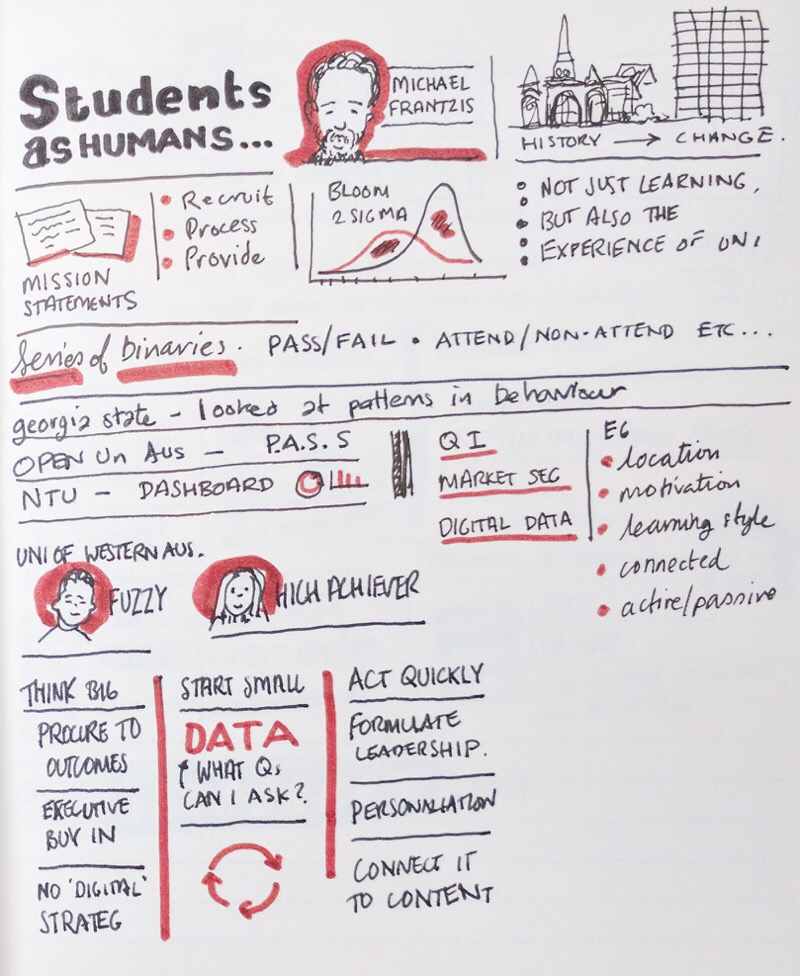 Students
as HUMANS...
MICHAEL
FRANTZIS
HISTORY → CHANGE.
MISSION
STATEMENTS
• Recruit
• Process
• Provide
BLOOM
2 SIGMA
NOT JUST LEARNING,
BUT ALSO THE
EXPERIENCE OF UNI
Series of binaries. PASS/FAIL • ATTEND/NON-ATTEND ETC...
georgia state - looked at patterns in behaviour
OPEN Un AUS - P.A.S.S
NTU - DASHBOARD
QI
MARKET SEG
DIGITAL DATA
EG
• location
• motivation
• learning style
• connected
• active/passive
UNI OF WESTERN AUS.
FUZZY
HIGH ACHIEVER
THINK BIG
PROCURE TO
OUTCOMES
EXECUTIVE
BUY IN
NO 'DIGITAL'
STRATEG
START SMALL
DATA
↑ WHAT Qs
CAN I ASK?
ACT QUICKLY
FORMULATE
LEADERSHIP.
PERSONALIATION
CONNECT IT
TO CONTENT